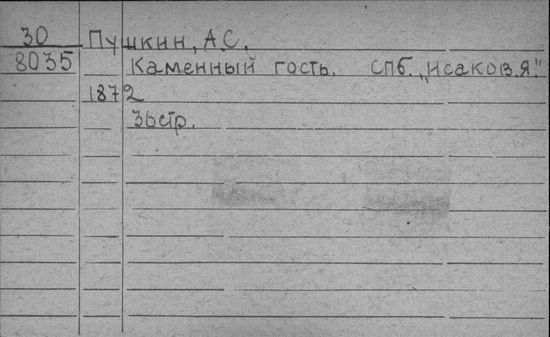 30 Пушкин, А.С.
8035 Каменный гость. СПб. „Исаков.Я."
1872
36стр.